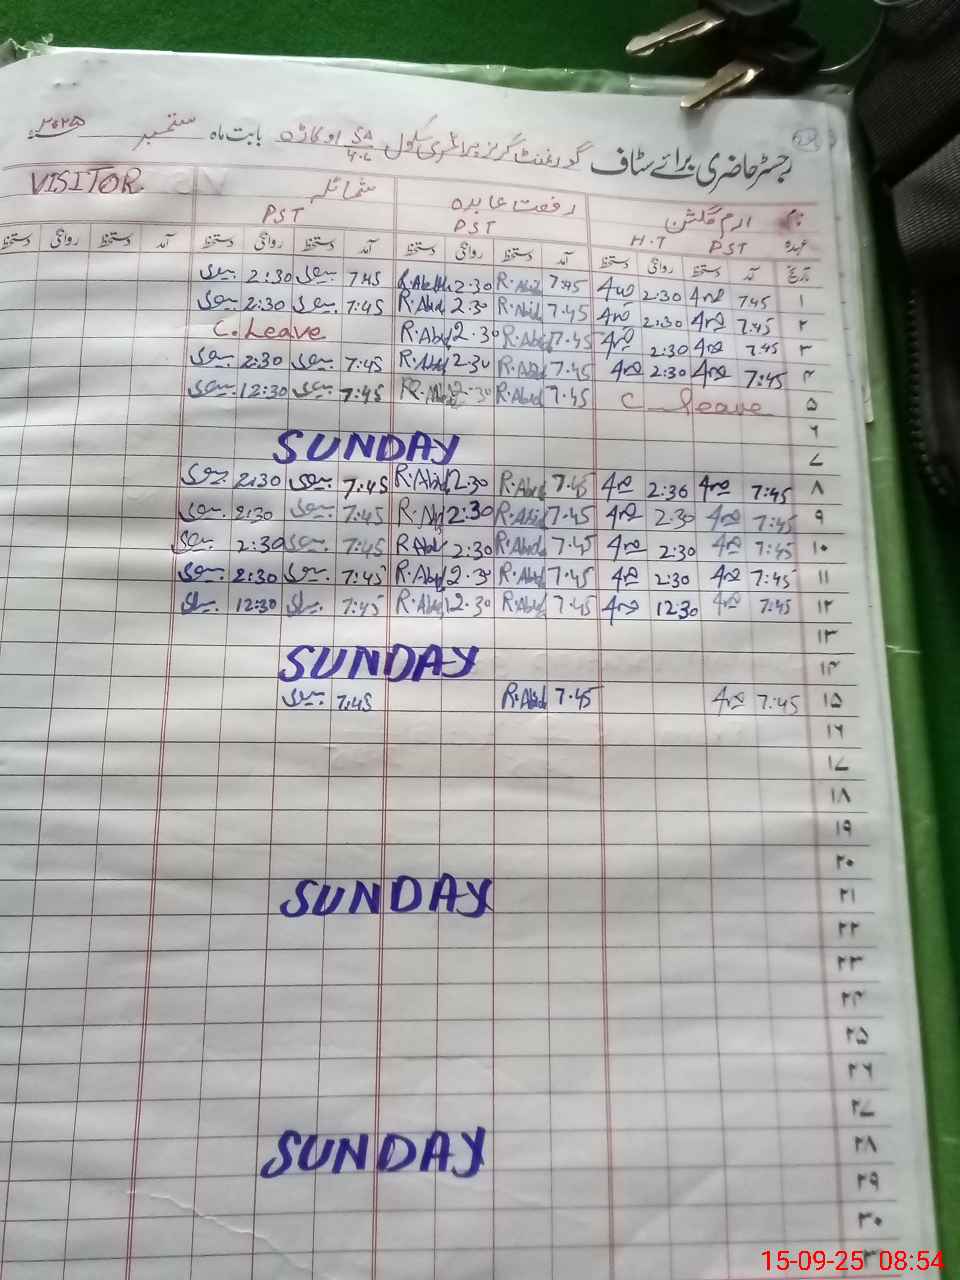 رجسٹر حاضری برائے سٹاف گورنمنٹ گرلز پرائمری سکول 5A/4.L اوکاڑہ بابت ماہ ستمبر ۲۰۲۵ء
نام ارم گلشن رفعت عابدہ شمائلہ VISITOR
عہدہ H.T PST PST PST
تاریخ آمد دستخط روانگی دستخط آمد دستخط روانگی دستخط آمد دستخط روانگی دستخط آمد دستخط روانگی دستخط
۱ 7:45 2:30 7:45 R.Abid 2:30 R.Abid 7:45 2:30
۲ 7:45 2:30 7.45 R.Abid 2.30 R.Abid 7:45 2:30
۳ 7:45 2:30 7.45 R.Abid 2.30 R.Abid C. Leave
۴ 7:45 2:30 7.45 R.Abid 2.30 R.Abid 7:45 2:30
۵ C. Leave 7.45 R.Abid R.Abid 7:45 12:30
۶
۷ SUNDAY
۸ 7:45 2:30 7.45 R.Abid 2.30 R.Abid 7:45 2:30
۹ 7:45 2:30 7.45 R.Abid 2:30 7:45 2:30
۱۰ 7:45 2:30 7.45 R.Abid 2:30 R.Abid 7:45 2:30
۱۱ 7:45 2:30 7.45 R.Abid 2.30 R.Abid 7:45 2:30
۱۲ 7:45 12:30 7.45 R.Abid 12.30 R.Abid 7:45 12:30
۱۳
۱۴ SUNDAY
۱۵ 7:45 7.45 R.Abid 7:45
۱۶
۱۷
۱۸
۱۹
۲۰
۲۱ SUNDAY
۲۲
۲۳
۲۴
۲۵
۲۶
۲۷
۲۸ SUNDAY
۲۹
۳۰
15-09-25 08:54